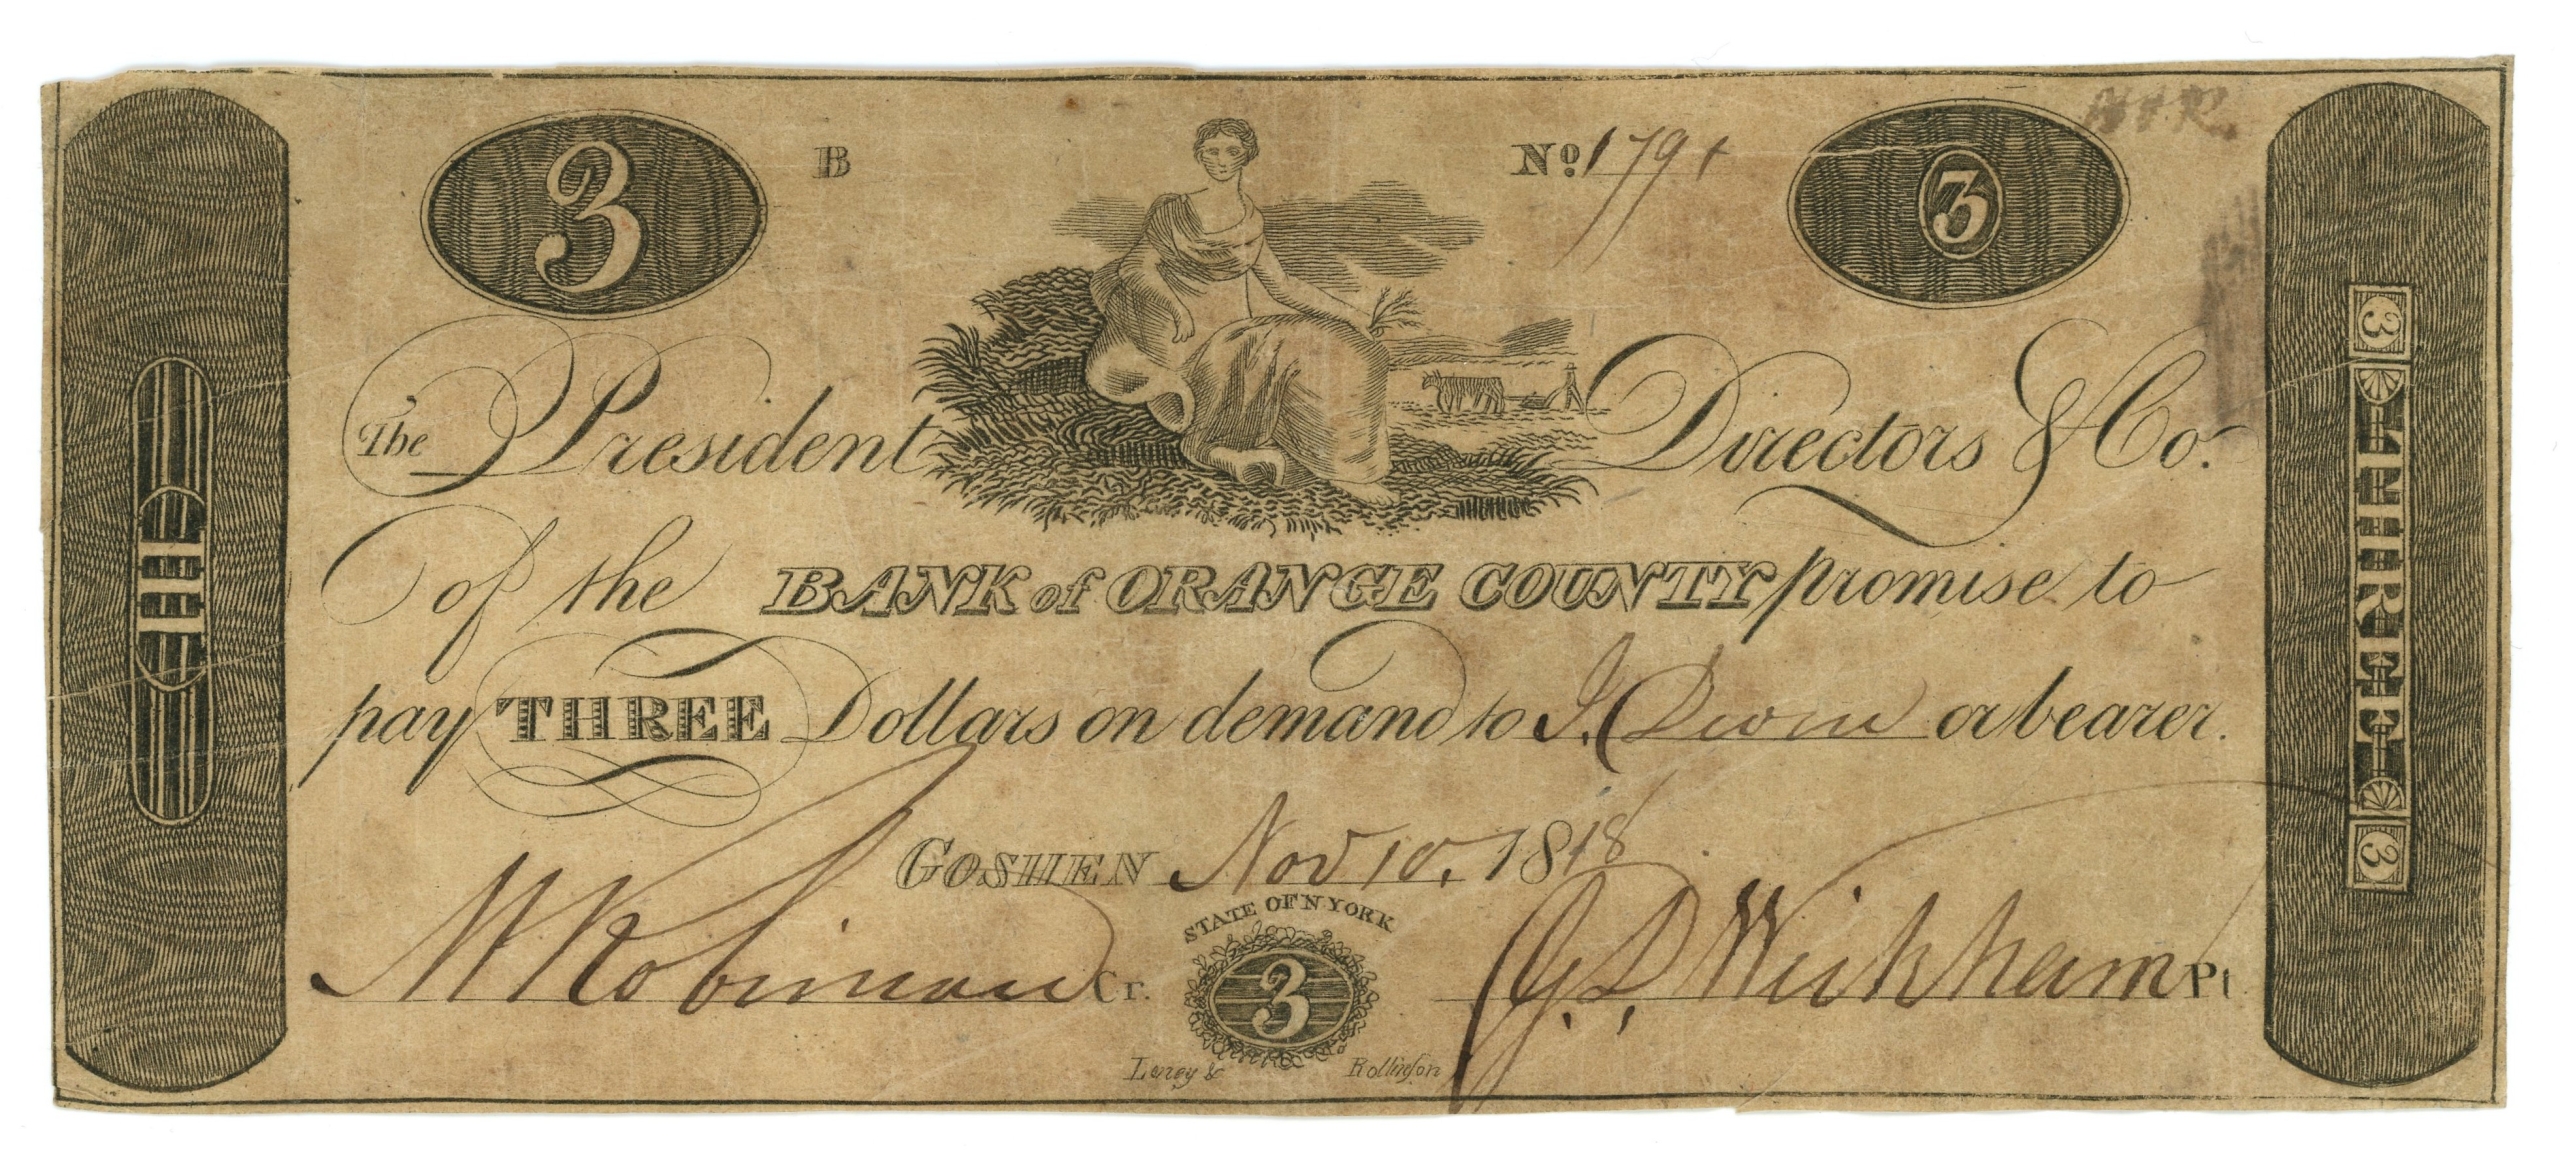 3
B
No. 1791
3
The President Directors & Co.
of the BANK of ORANGE COUNTY promise to
pay THREE Dollars on demand to or bearer.
GOSHEN Nov 10. 1818
STATE OF N YORK
3
M Robinson Cr.
G. D. Wickham Pt
Leney & Rollinson
III
3 THREE 3